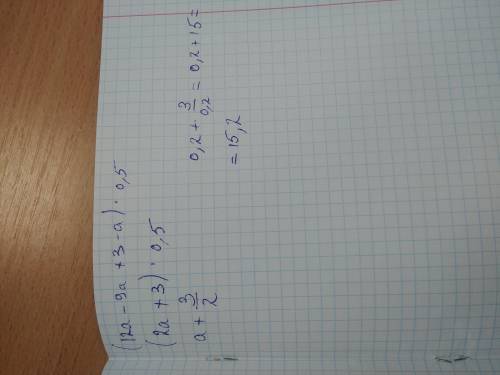 (12a - 9a + 3 - a) · 0,5
(2a + 3) · 0,5
a + 3/2
0,2 + 3/0,2 = 0,2 + 15 =
= 15,2